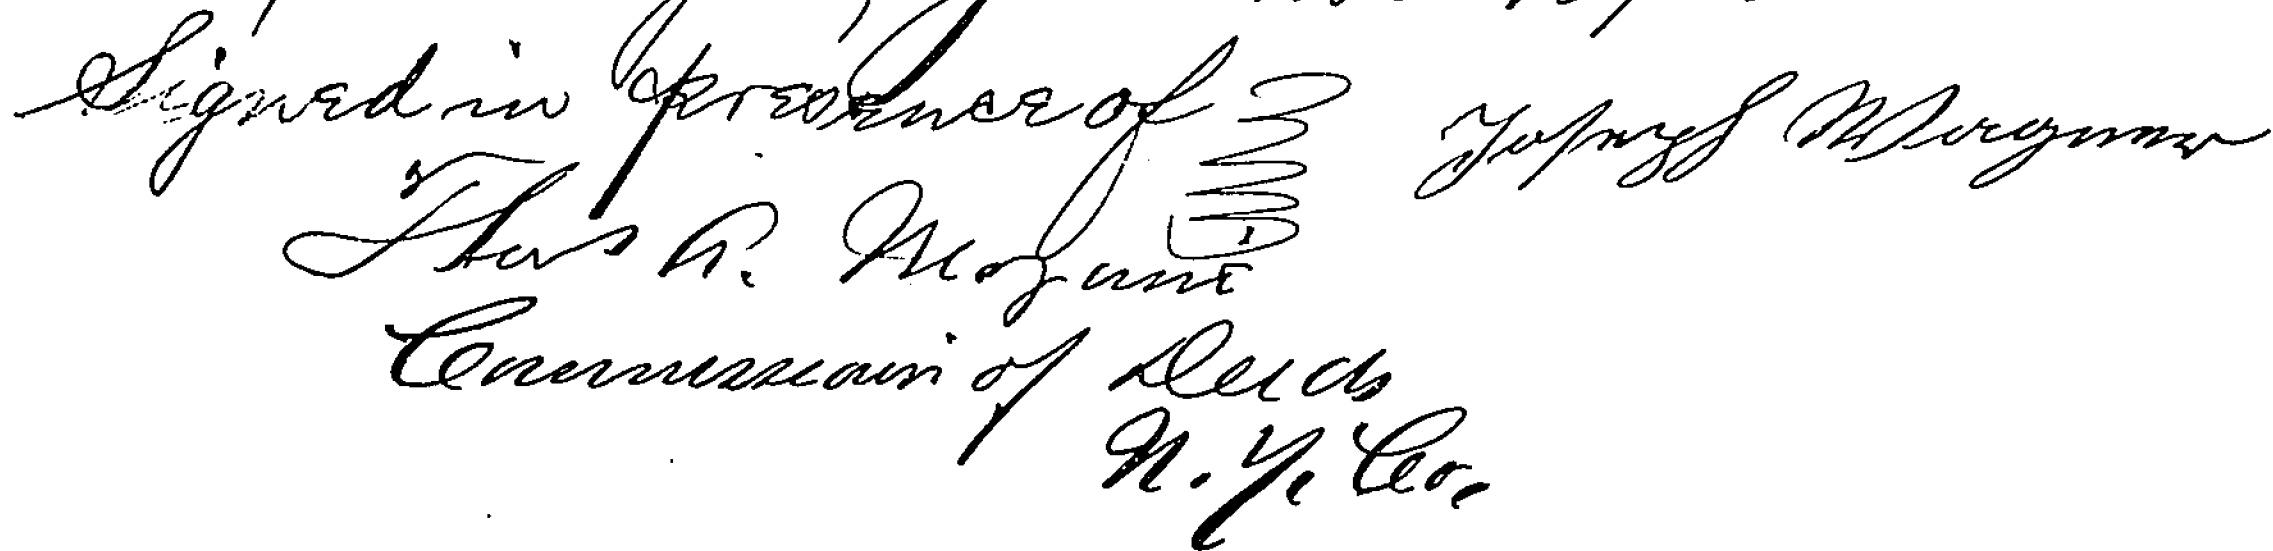 Signed in presence of Joseph Wagner
Thos R.
Commission of Deeds
N. Y. Co.